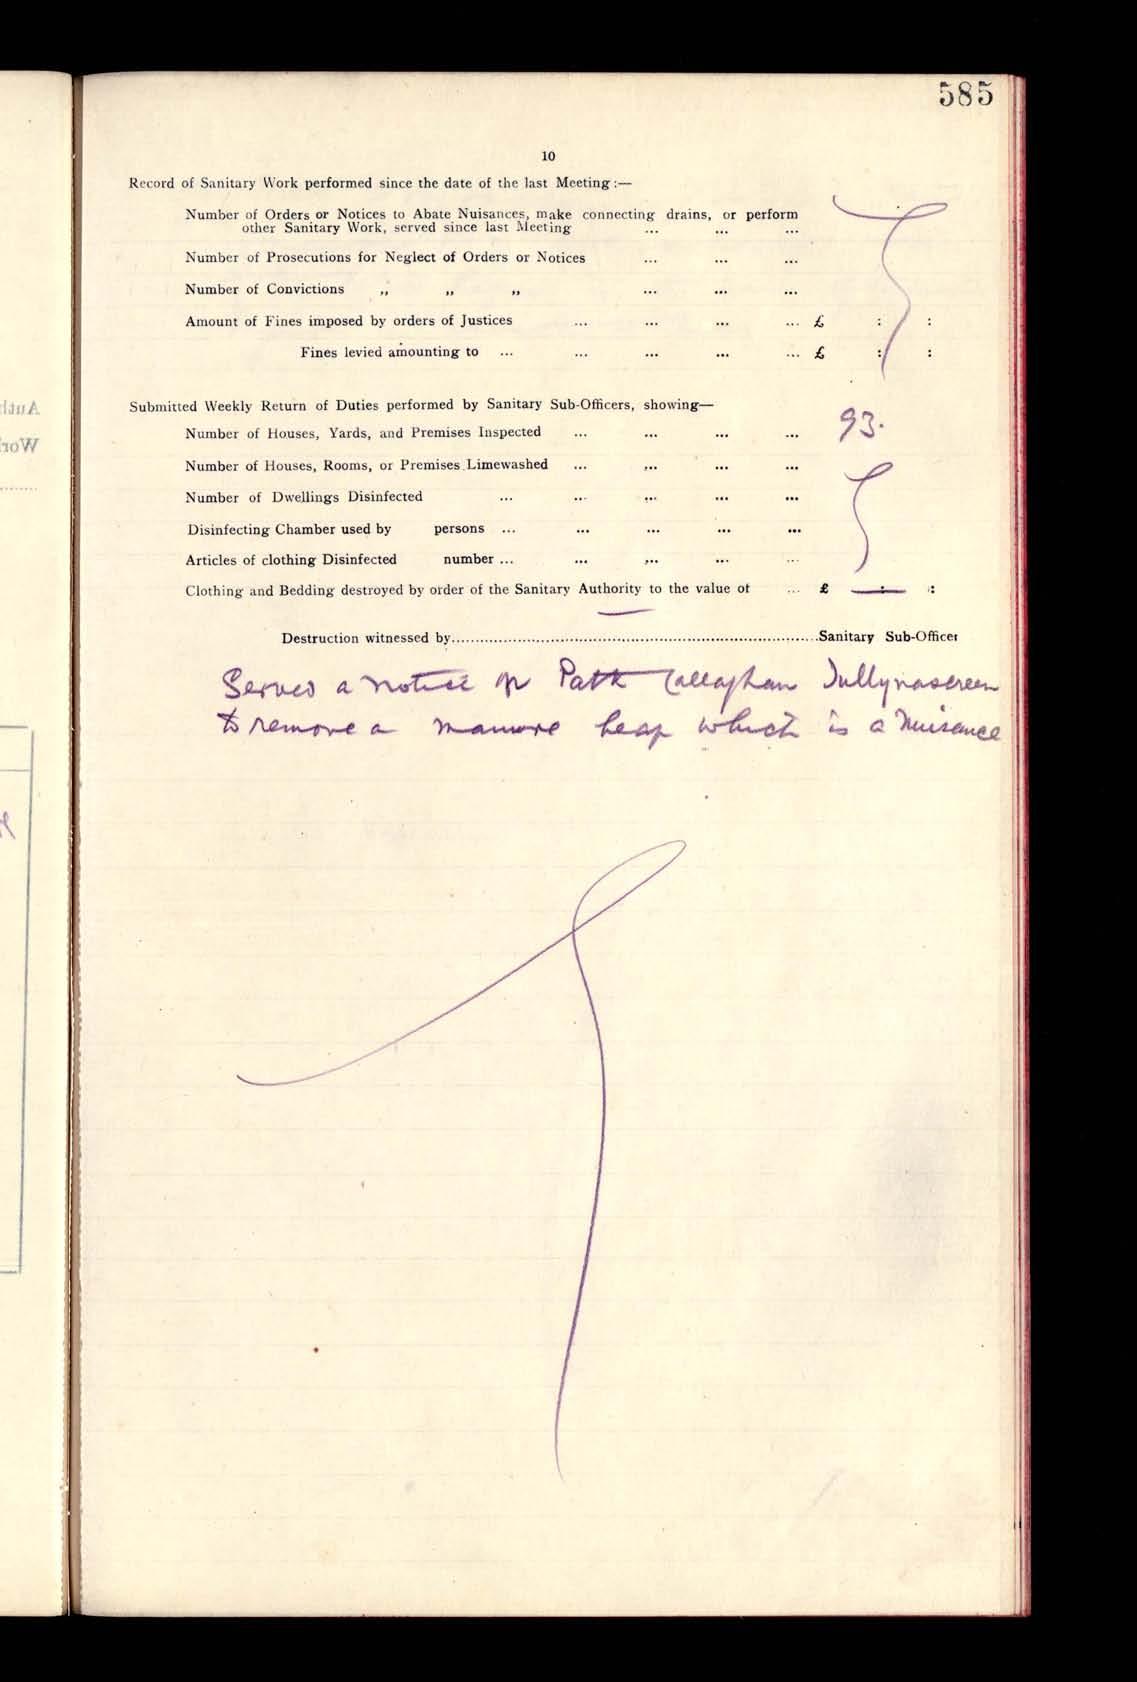 585
10
Record of Sanitary Work performed since the date of the last Meeting:—
Number of Orders or Notices to Abate Nuisances, make connecting drains, or perform
other Sanitary Work, served since last Meeting ... ... ...
Number of Prosecutions for Neglect of Orders or Notices ... ... ...
Number of Convictions ,, ,, ,, ... ... ...
Amount of Fines imposed by orders of Justices ... ... ... ... £ : :
Fines levied amounting to ... ... ... ... ... £ : :
Submitted Weekly Return of Duties performed by Sanitary Sub-Officers, showing—
Number of Houses, Yards, and Premises Inspected ... ... ... ... 93.
Number of Houses, Rooms, or Premises Limewashed ... ... ... ...
Number of Dwellings Disinfected ... ... ... ... ...
Disinfecting Chamber used by persons ... ... ... ... ...
Articles of clothing Disinfected number ... ... ... ... ...
Clothing and Bedding destroyed by order of the Sanitary Authority to the value of ... £ : :
Destruction witnessed by..........Sanitary Sub-Officer
Served a notice on Patk Callaghan Tullynascreen
to remove a manure heap which is a Nuisance